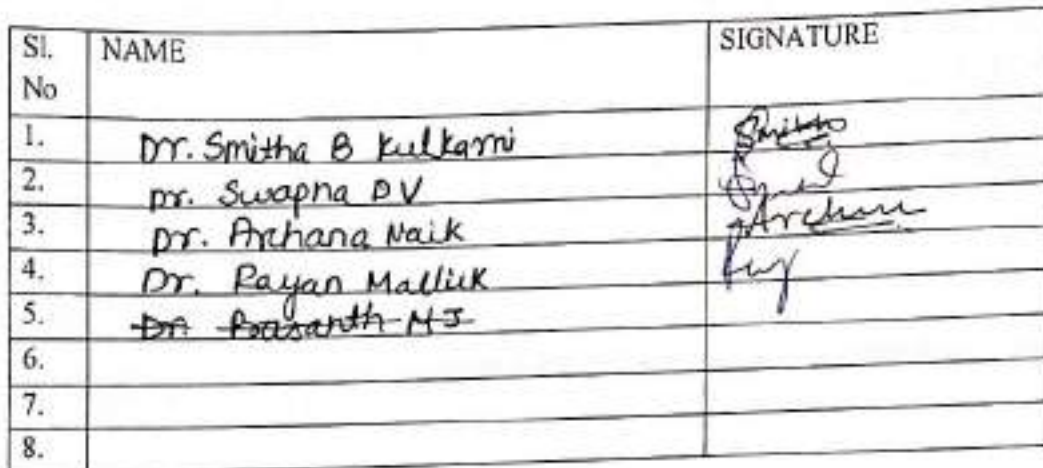 Sl. No NAME SIGNATURE
1. Dr. Smitha B Kulkarni Smitha
2. Dr. Swapna D V
3. Dr. Archana Naik Archana
4. Dr. Rayan Mallick
5. Dr Prasanth M J
6.
7.
8.